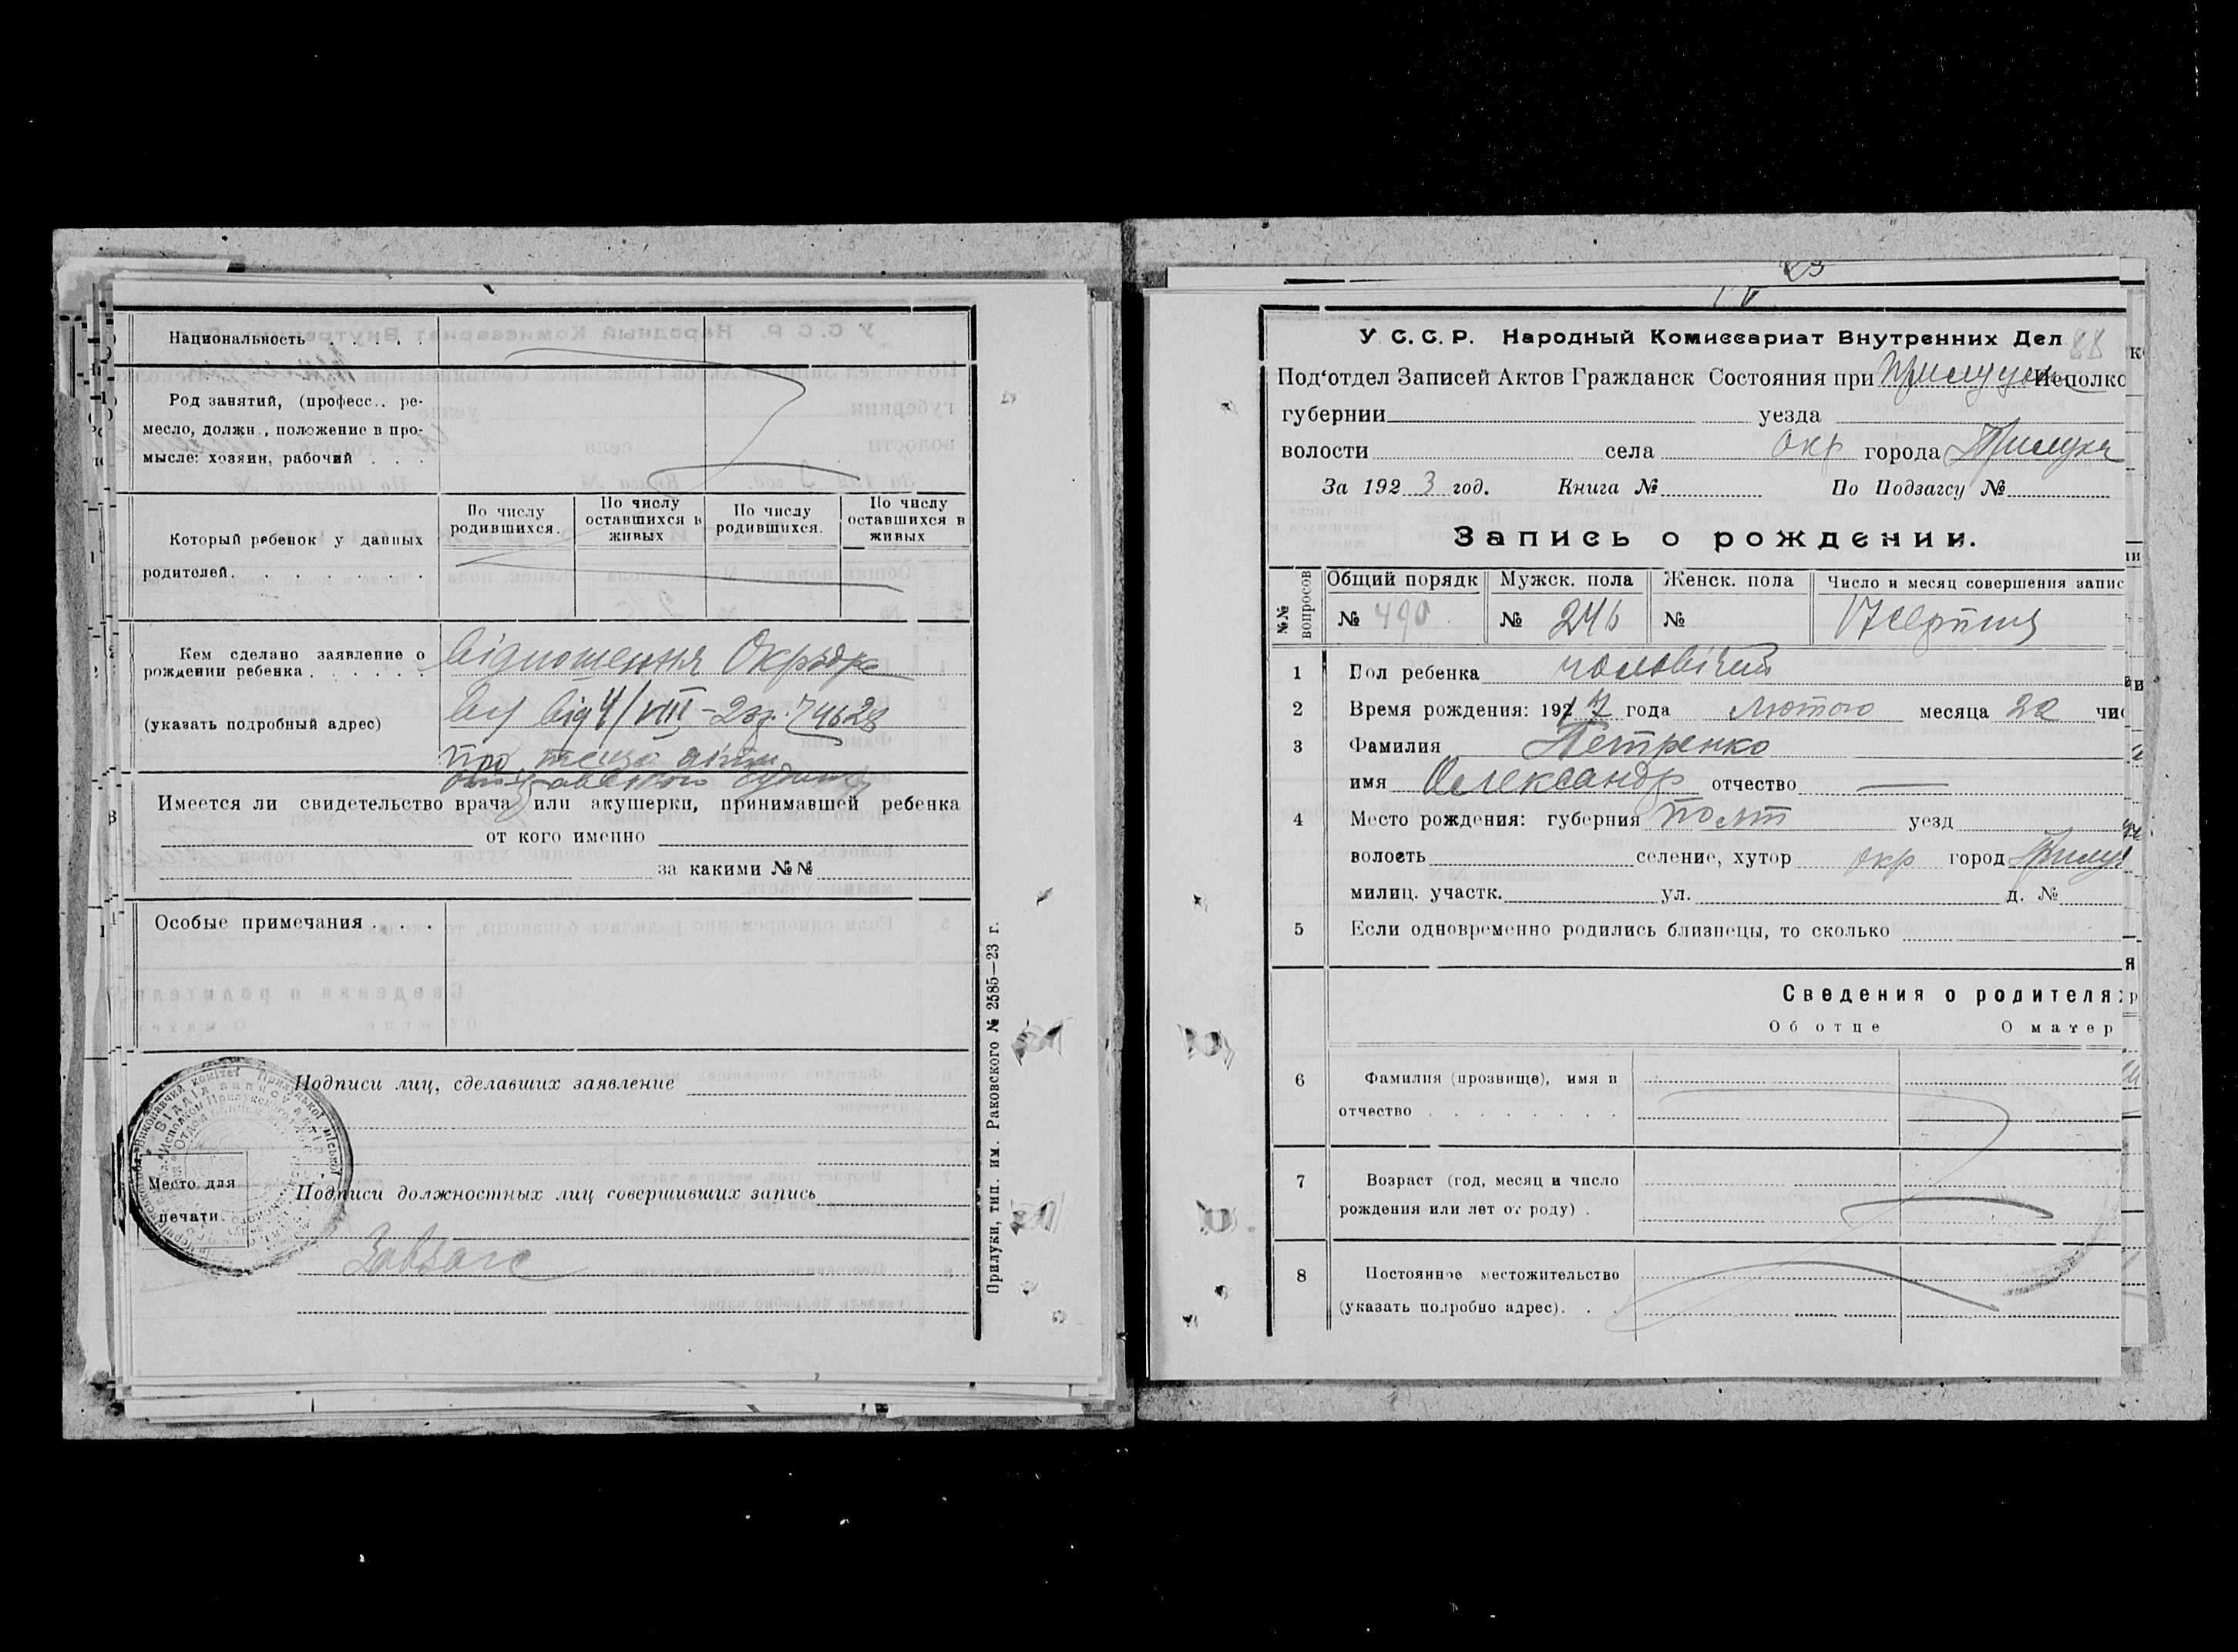 Национальность . . . . .
Род занятий, (професс., ре-
месло, должн., положение в про-
мысле: хозяин, рабочий . . .
Который ребенок у данных
родителей. . . . . . .
По числу родившихся.
По числу оставшихся в живых
По числу родившихся.
По числу оставшихся в живых
Кем сделано заявление о
рождении ребенка . . . . . .
(указать подробный адрес)
відношення
від 4/VIII - 23 р. 74628
про
Имеется ли свидетельство врача или акушерки, принимавшей ребенка
от кого именно
за какими №№
Особые примечания . . .
Подписи лиц, сделавших заявление
Место для
печати.
Подписи должностных лиц совершивших запись
Завзагс
Прилуки, тип. им. Раковского № 2585—23 г.
У С. С. Р. Народный Комиссариат Внутренних Дел 88
Под'отдел Записей Актов Гражданск Состояния при Исполко
губернии уезда
волости села окр города Прилуки
За 192 3 год. Книга № По Подзагсу №
Запись о рождении.
№№ вопросов
Общий порядк Мужск. пола Женск. пола Число и месяц совершения запис
№ 490 № 246 № 17 серпня
1 Пол ребенка чоловічий
2 Время рождения: 1917 года Лютого месяца 22 чис
3 Фамилия Петренко
имя Олександр отчество —
4 Место рождения: губерния Полт уезд
волость селение, хутор окр город Прилу
милиц. участк. ул. д. №
5 Если одновременно родились близнецы, то сколько
Сведения о родителях
Об отце О матер
6 Фамилия (прозвище), имя и
отчество . . . . . . . .
7 Возраст (год, месяц и число
рождения или лет от роду) .
8 Постоянное местожительство
(указать подробно адрес). . .